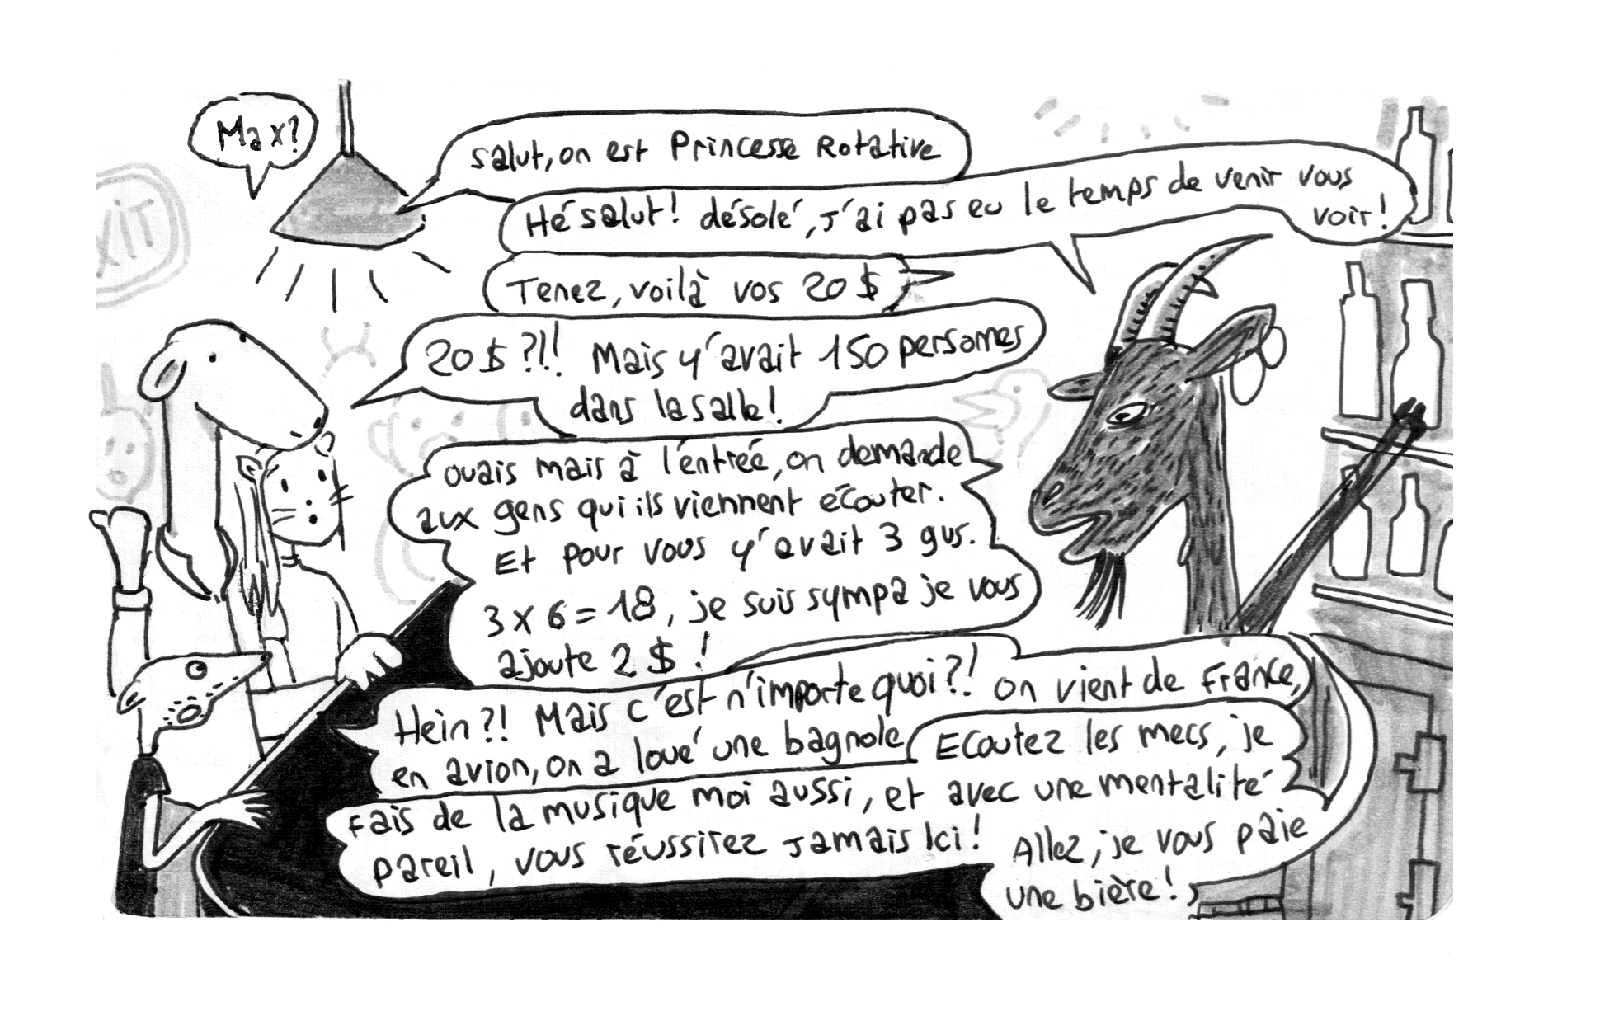 Max?
XIT
salut, on est Princesse Rotative
Hé salut! désolé, j'ai pas eu le temps de venir vous
voir!
Tenez, voilà vos 20 $
20 $ ?!! Mais y'avait 150 personnes
dans la salle!
ouais mais à l'entrée, on demande
aux gens qui ils viennent écouter.
Et pour vous y'avait 3 gus.
3 x 6 = 18, je suis sympa je vous
ajoute 2 $ !
Hein ?! Mais c'est n'importe quoi ?! On vient de France,
en avion, on a loué une bagnole
Ecoutez les mecs, je
fais de la musique moi aussi, et avec une mentalité
pareil, vous réussirez jamais ici!
Allez, je vous paie
une bière!